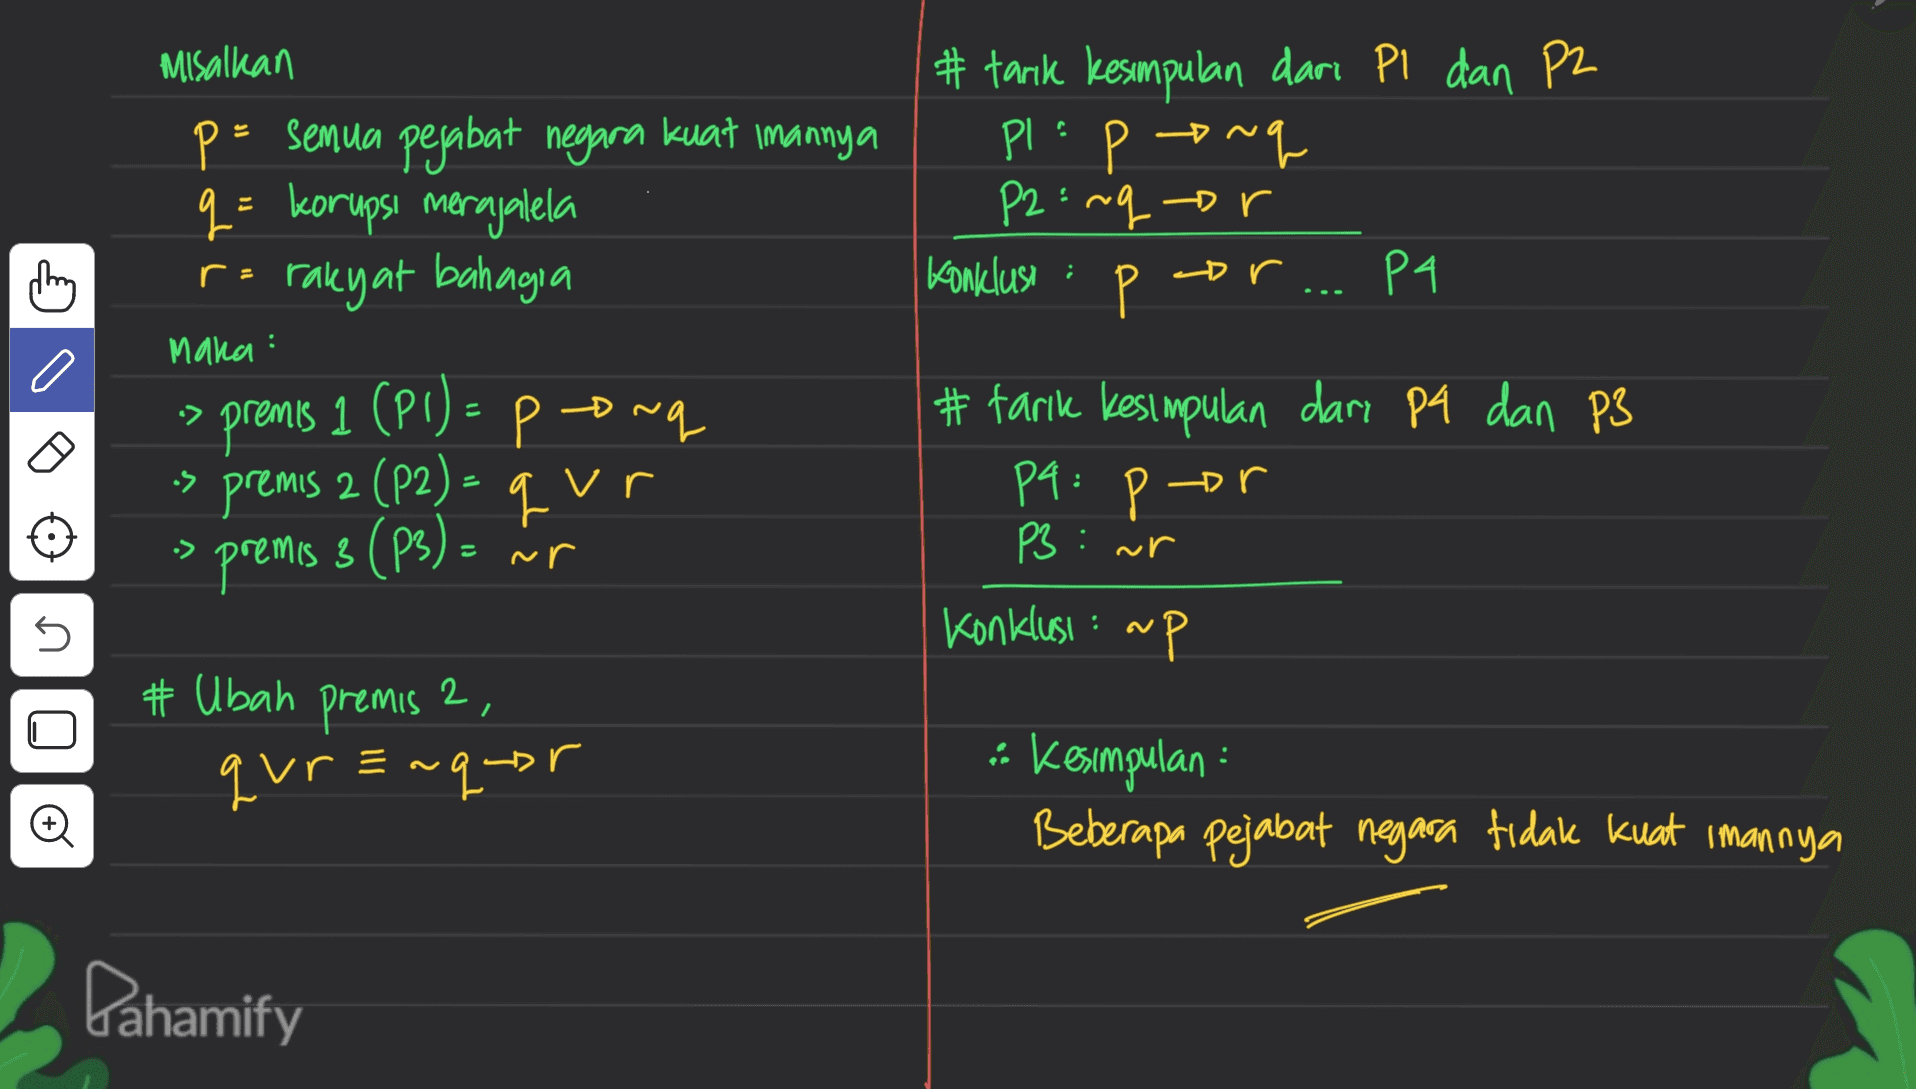 Misalkan
p = semua pejabat negara kuat imannya
q = korupsi merajalela
r = rakyat bahagia
maka :
•> premis 1 (P1) = p → ~q
•> premis 2 (P2) = q ∨ r
•> premis 3 (P3) = ~r
# Ubah premis 2,
q ∨ r ≡ ~q → r
# tarik kesimpulan dari P1 dan P2
P1 : p → ~q
P2 : ~q → r
Konklusi : p → r ... P4
# tarik kesimpulan dari P4 dan P3
P4 : p → r
P3 : ~r
Konklusi : ~p
∴ Kesimpulan :
Beberapa pejabat negara tidak kuat imannya
Pahamify